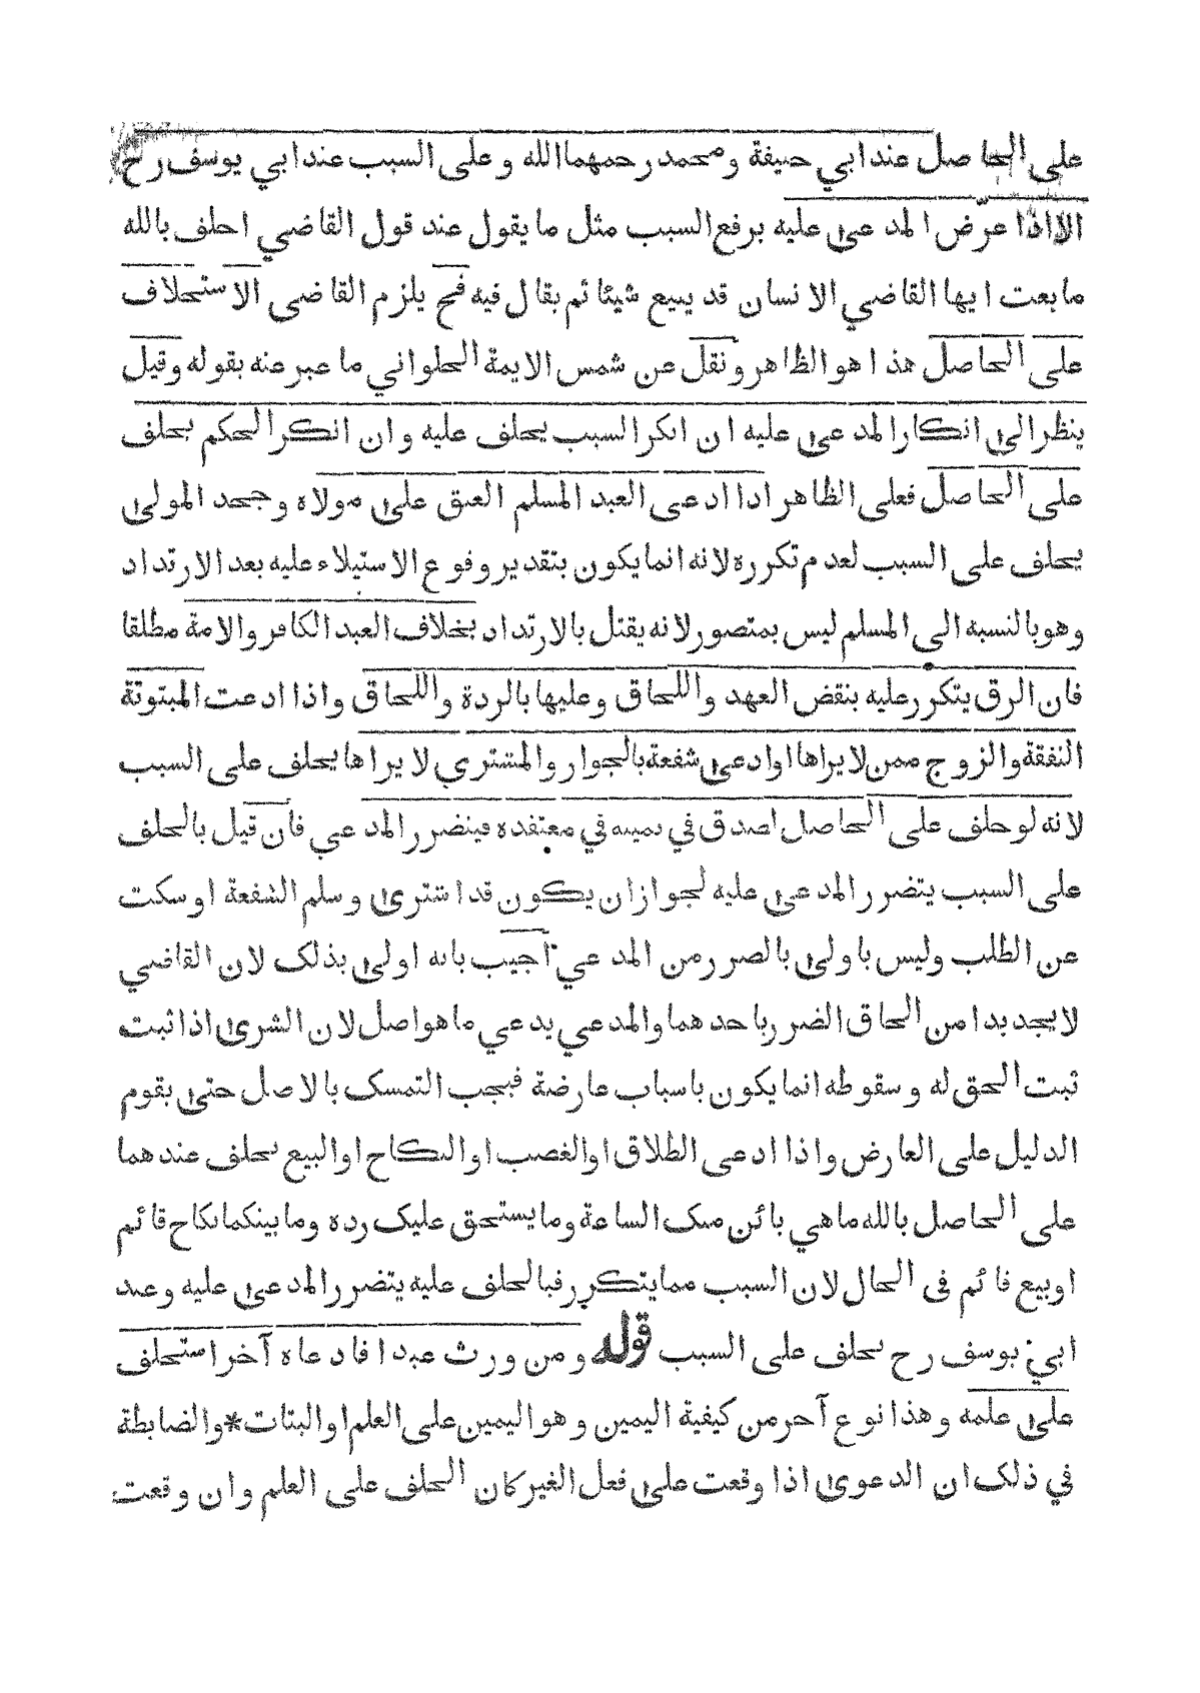 على الحاصل عند ابي حنيفة ومحمد رحمهما الله وعلى السبب عند ابي يوسف رح
الا اذا عرّض المدعى عليه برفع السبب مثل ما يقول عند قول القاضي احلف بالله
ما بعت ايها القاضي الانسان قد يبيع شيئا ثم يقال فيه فح يلزم القاضى الاستحلاف
على الحاصل هذا هو الظاهر ونقل عن شمس الايمة الحلواني ما عبر عنه بقوله وقيل
ينظر الى انكار المدعى عليه ان انكر السبب يحلف عليه وان انكر الحكم يحلف
على الحاصل فعلى الظاهر اذا ادعى العبد المسلم العتق على مولاه وجحد المولى
يحلف على السبب لعدم تكرره لانه انما يكون بتقدير وقوع الاستيلاء عليه بعد الارتداد
وهو بالنسبه الى المسلم ليس بمتصور لانه يقتل بالارتداد بخلاف العبد الكافر والامة مطلقا
فان الرق يتكرر عليه بنقض العهد واللحاق وعليها بالردة واللحاق واذا ادعت المبتوتة
النفقة والزوج ممن لا يراها او ادعى شفعة بالجوار والمشتري لا يراها يحلف على السبب
لانه لو حلف على الحاصل لصدق في يمينه في معتقده فيتضرر المدعي فان قيل بالحلف
على السبب يتضرر المدعى عليه لجواز ان يكون قد اشترى وسلم الشفعة او سكت
عن الطلب وليس باولى بالضرر من المدعي اجيب بانه اولى بذلك لان القاضي
لا يجد بدا من الحاق الضرر باحدهما والمدعي يدعي ما هو اصل لان الشرى اذا ثبت
ثبت الحق له وسقوطه انما يكون باسباب عارضة فيجب التمسك بالاصل حتى يقوم
الدليل على العارض واذا ادعى الطلاق او الغصب او النكاح او البيع يحلف عندهما
على الحاصل بالله ما هي بائن منك الساعة وما يستحق عليك رده وما بينكما نكاح قائم
او بيع قائم فى الحال لان السبب مما يتكرر فبالحلف عليه يتضرر المدعى عليه وعند
ابي يوسف رح يحلف على السبب قوله ومن ورث عبدا فادعاه آخر استحلف
على علمه وهذا نوع آخر من كيفية اليمين وهو اليمين على العلم او البتات * والضابطة
في ذلك ان الدعوى اذا وقعت على فعل الغير كان الحلف على العلم وان وقعت